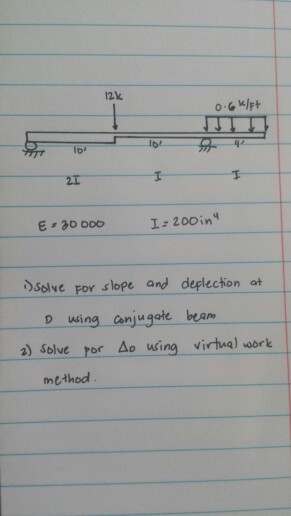 12k
0.6 k/ft
10'
10'
4'
2I
I
I
E = 30 000
I = 200in⁴
1) Solve for slope and deflection at
D using conjugate beam
2) Solve for ΔD using virtual work
method.